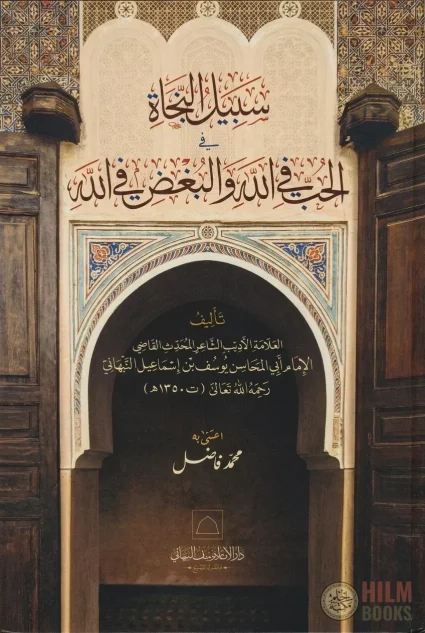 سَبِيلُ النَّجَاةِ
فِي
الحُبِّ فِي اللهِ وَالبُغْضِ فِي اللهِ
تَأْلِيفُ
العَلَّامَةِ الأَدِيبِ الشَّاعِرِ المُحَدِّثِ القَاضِي
الإِمَامِ أَبِي المَحَاسِنِ يُوسُفَ بْنِ إِسْمَاعِيلَ النَّبْهَانِيِّ
رَحِمَهُ اللهُ تَعَالَى (ت ١٣٥٠هـ)
اعتنى به
محمد فاضل
دار الإمام يوسف النبهاني
HILM
BOOKS